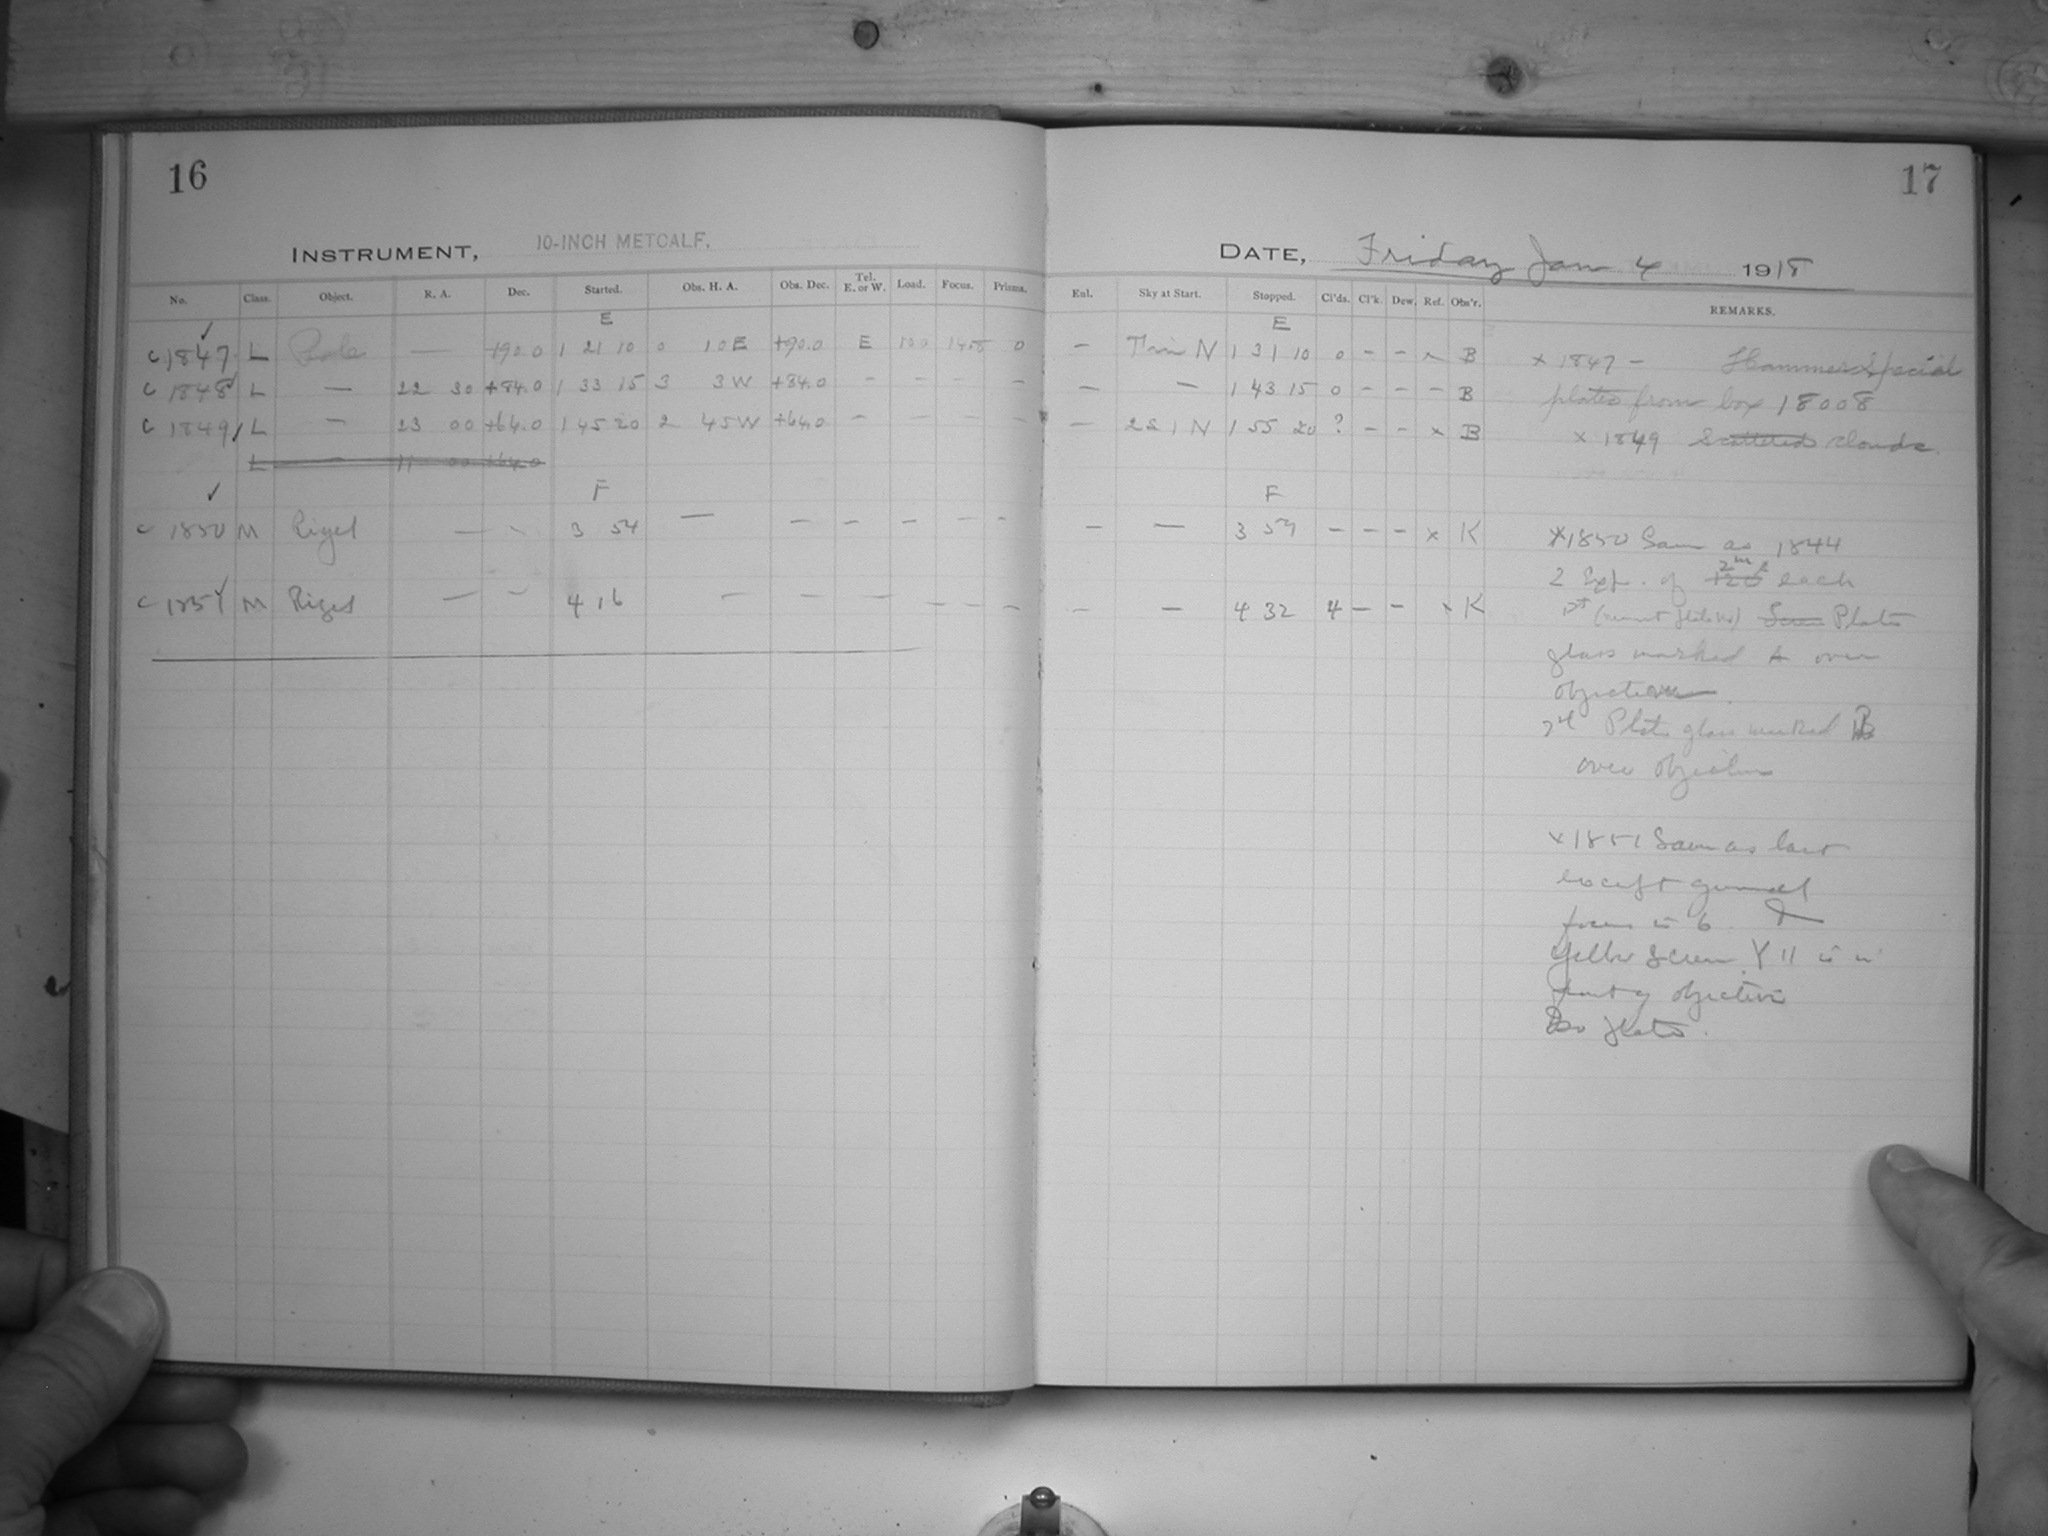 16
INSTRUMENT, 10-INCH METCALF.
No. Class. Object. R. A. Dec. Started. Obs. H. A. Obs. Dec. Tel. E. or W. Load. Focus. Prisms.
E
c 1847 L Pole — +90.0 1 21 10 0 10 E +90.0 E 100 0
c 1848 L — 22 30 +84.0 1 33 15 3 3 W +84.0 — — — —
c 1849 L — 23 00 +64.0 1 45 20 2 45 W +64.0 — — — —
L — 11 00 +64.0
F
c 1850 M Rigel — — 3 54 — — — — — —
c 1851 M Rigel — — 4 16 — — — — — —
17
DATE, Friday Jan 4 1918
Eul. Sky at Start. Stopped. Cl'ds. Cl'k. Dew. Ref. Obs'r. REMARKS.
E
— Thin N 1 31 10 0 — — x B x 1847 — Hammer Special
— — 1 43 15 0 — — — B plates from box 18008
— 2S 1 N 1 55 20 ? — — x B x 1849 Scattered clouds
F
— — 3 59 — — — x K x1850 Same as 1844
2 Exp. of 2m each
— — 4 32 4 — — x K 1st Plate
glass marked A over
objective
2d Plate glass marked B
over objective
x 1851 Same as last
except
focus is 6
Yellow Screen Y 11 is in
front of objective
plate.